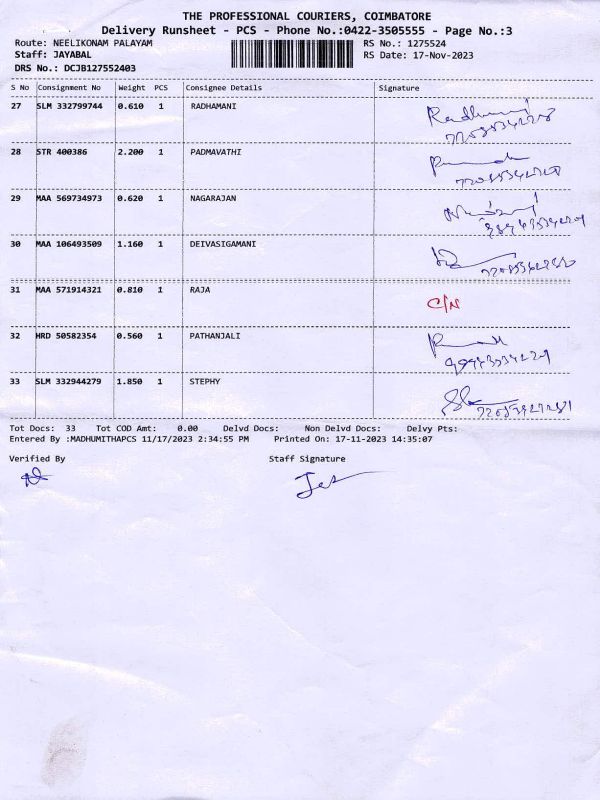 THE PROFESSIONAL COURIERS, COIMBATORE
Delivery Runsheet - PCS - Phone No.:0422-3505555 - Page No.:3
Route: NEELIKONAM PALAYAM RS No.: 1275524
Staff: JAYABAL RS Date: 17-Nov-2023
DRS No.: DCJB127552403
S No Consignment No Weight PCS Consignee Details Signature
27 SLM 332799744 0.610 1 RADHAMANI Radhamani
28 STR 400386 2.200 1 PADMAVATHI
29 MAA 569734973 0.620 1 NAGARAJAN
30 MAA 106493509 1.160 1 DEIVASIGAMANI
31 MAA 571914321 0.810 1 RAJA C/N
32 HRD 50582354 0.560 1 PATHANJALI
33 SLM 332944279 1.850 1 STEPHY
Tot Docs: 33 Tot COD Amt: 0.00 Delvd Docs: Non Delvd Docs: Delvy Pts:
Entered By :MADHUMITHAPCS 11/17/2023 2:34:55 PM Printed On: 17-11-2023 14:35:07
Verified By Staff Signature